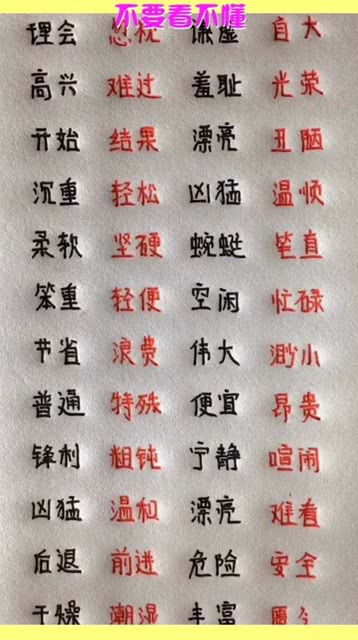 不要看不懂
理会 忽视 谦虚 自大
高兴 难过 羞耻 光荣
开始 结果 漂亮 丑陋
沉重 轻松 凶猛 温顺
柔软 坚硬 蜿蜒 笔直
笨重 轻便 空闲 忙碌
节省 浪费 伟大 渺小
普通 特殊 便宜 昂贵
锋利 粗钝 宁静 喧闹
凶猛 温和 漂亮 难看
后退 前进 危险 安全
干燥 潮湿 丰富